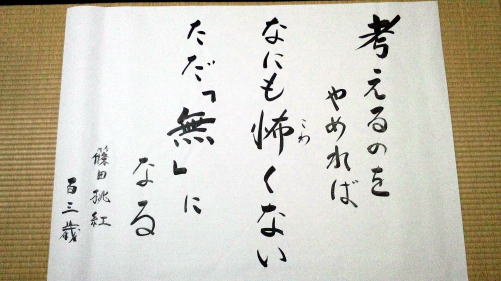 考えるのを
やめれば
なにも怖くない
こわ
ただ「無」に
なる
篠田桃紅
百三歳